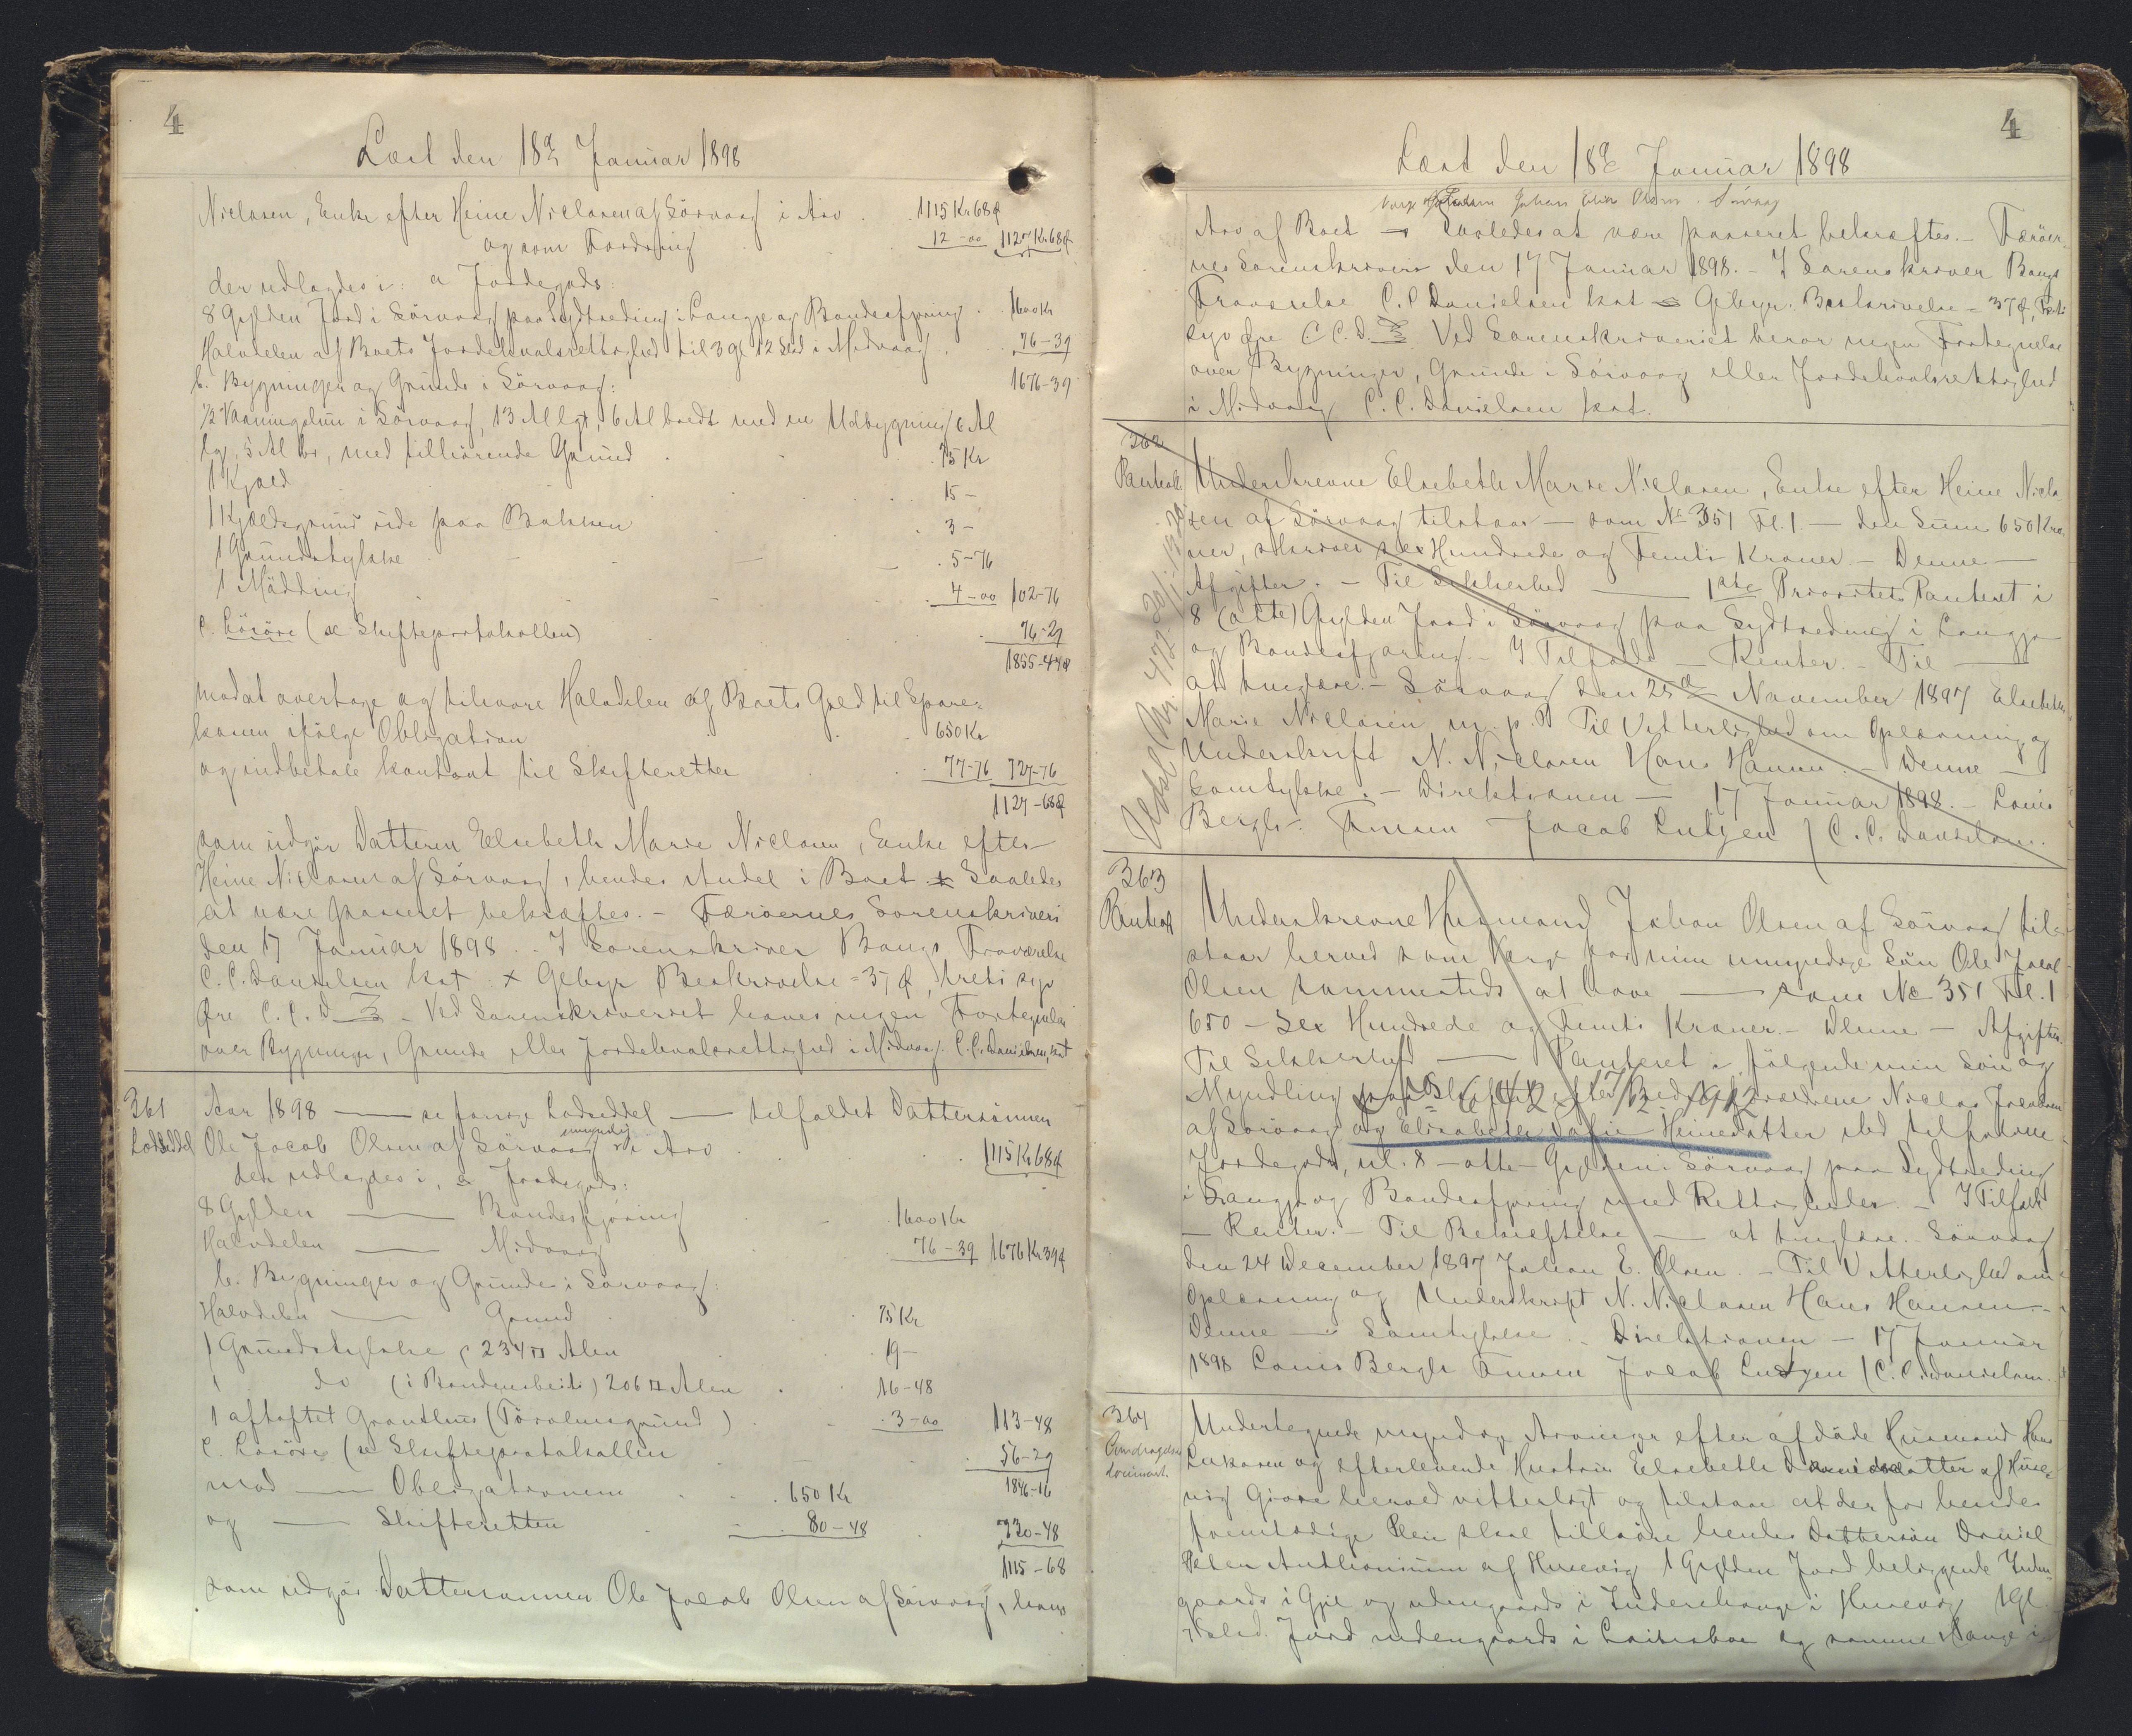 4
Læst den 18de Januar 1898
Niclasen, Enke efter Heine Niclasen af Sörvaag i Arv . 1115 Kr 68 Ø
og som Fordring 12 - 00 1127 Kr 68 Ø
der udlagdes i: a Jordegods:
8 Gylden Jord i Sörvaag paa Sydtræding i Laugje og Bondesfjoring . 1600 Kr
Halvdelen af Boets Jordekvalsrettighed til 3 gl 12 Skd i Midvaag . 76-39
b. Bygninger og Grunde i Sörvaag: 1676-39
1/2 Vaaningshus i Sörvaag, 13 Al lgt, 6 Al bredt med en Udbygning 6 Al
lg, 5 Al br, med tilhörende Grund . 75 Kr
1 Kjæld 15 -
1 Kjældsgrund ude paa Bakken 3 -
1 Grundstykke . 5-76
1 Mödding . 4-00 102-76
c. Lösöre (se Skifteprotokollen) 76-29
1855-44 Ø
mod at overtage og tilsvare Halvdelen af Boets Gæld til Spare-
kassen ifölge Obligation 650 Kr
og indbetale kontant til Skifteretten 77-76 727-76
1127-68 Ø
som udgör Datteren Elsebeth Marie Niclasen, Enke efter
Heine Niclasen af Sörvaag, hendes Andel i Boet Saaledes
at være passeret bekræftes. - Færöernes Sorenskriveri
den 17 Januar 1898. - I Sorenskriver Bangs Fraværelse
C. C. Danielsen kst. Gebyr Beskrivelse = 37 Ø, treti syv
Øre C. C. D. - Ved Sorenskriveriet haves ingen Fortegnelse
over Bygninger, Grunde eller Jordekvalsrettighed i Midvaag. C. C. Danielsen, kst
361 Aar 1898 — se forrige Lodseddel — tilfaldet Dattersönnen
Lodseddel Ole Jacob Olsen af Sörvaag umyndig i Arv . 1115 Kr 68 Ø
der udlagdes i, a Jordegods:
8 Gylden — Bondesfjoring . 1600 Kr
Halvdelen — Midvaag 76-39 1676 Kr 39 Ø
b. Bygninger og Grunde i Sörvaag:
Halvdelen — Grund 75 Kr
1 Grundstykke, 234 □ Alen 19 -
1 do (i Bondensbeite) 206 □ Alen . 16-48
1 aftoftet Grothus (Törvhusgrund) . 3-00 113-48
c. Lösöre (se Skifteprotokollen 56-29
1846-16
mod — Obligationen . 650 Kr
og — Skifteretten 80-48 730-48
1115-68
som udgör Dattersønnen Ole Jacob Olsen af Sörvaag, hans
4
Læst den 18de Januar 1898
Værge Johan Elias Olsen i Sörvaag
Arv af Boet — Saaledes at være passeret bekræftes. - Færöer-
nes Sorenskriveri den 17 Januar 1898. - I Sorenskriver Bangs
Fraværelse C. C. Danielsen kst — Gebyr. Beskrivelse = 37 Ø, treti
syv Øre C. C. D. Ved Sorenskriveriet beror ingen Fortegnelse
over Bygninger, Grunde i Sörvaag eller Jordekvalsrettighed
i Midvaag C. C. Danielsen kst.
362
Pantobl. Underskrevne Elsebeth Marie Niclasen, Enke efter Heine Nicla-
sen af Sörvaag tilstaar — som No 351 Fl. 1 — den Sum 650 Kro-
ner, skriver sex Hundrede og Femti Kroner. - Denne —
Afgifter. - Til Sikkerhed — 1ste Prioritets Panteret i
8 (otte) Gylden Jord i Sörvaag paa Sydtræding i Laugje
og Bondesfjoring. - I Tilfælde — Renter. - Til —
at tinglæse. - Sörvaag den 25de November 1897 Elsebeth
Marie Niclasen m. p. P. Til Vitterlighed om Oplæsning og
Underskrift N. Niclasen Hans Hansen. - Denne —
Samtykke. - Direktionen — 17 Januar 1898. - Louis
Bergh. Jacob Lutzen / C. C. Danielsen.
363
Pantobl Underskrevne Husmand Johan Olsen af Sörvaag til-
staar herved som Værge for min umyndige Sön Ole Jacob
Olsen sammesteds at have — som No 351 Fl. 1
650 - Sex Hundrede og Femti Kroner. - Denne — Afgifter.
Til Sikkerhed — Panteret i fölgende min Sön og
Myndling Niclas Joensen
af Sörvaag og Elisabeth Sofie Heinesdatter ved tilfaldne
Jordegods, nl. 8 - otte - Gylden i Sörvaag paa Sydtræding
i Laugje og Bondesfjoring med Rettigheder. - I Tilfælde
— Renter. - Til Bekræftelse — at tinglæse. Sörvaag
den 24 December 1897 Johan E. Olsen. - Til Vitterlighed om
Oplæsning og Underskrift N. Niclasen Hans Hansen. -
Denne — Samtykke. - Direktionen — 17 Januar
1898 Louis Bergh Jacob Lutzen / C. C. Danielsen.
364 Undertegnede myndige Arvinger efter afdöde Husmand Hans
Lukasen og efterlevende Hustru Elsebeth Danielsdatter af Huse-
vig Gjöre herved vitterligt og tilstaar at der for hendes
fremtidige Pleie skal tilhöre hendes Dattersön Daniel
Peter Anthonium af Husevig 1 Gylden Jord beliggende Inden-
gaards i Gjil og udengaards i Inderehauge i Husevig 1 Gl.
Jord udengaards i og samme Hauge i